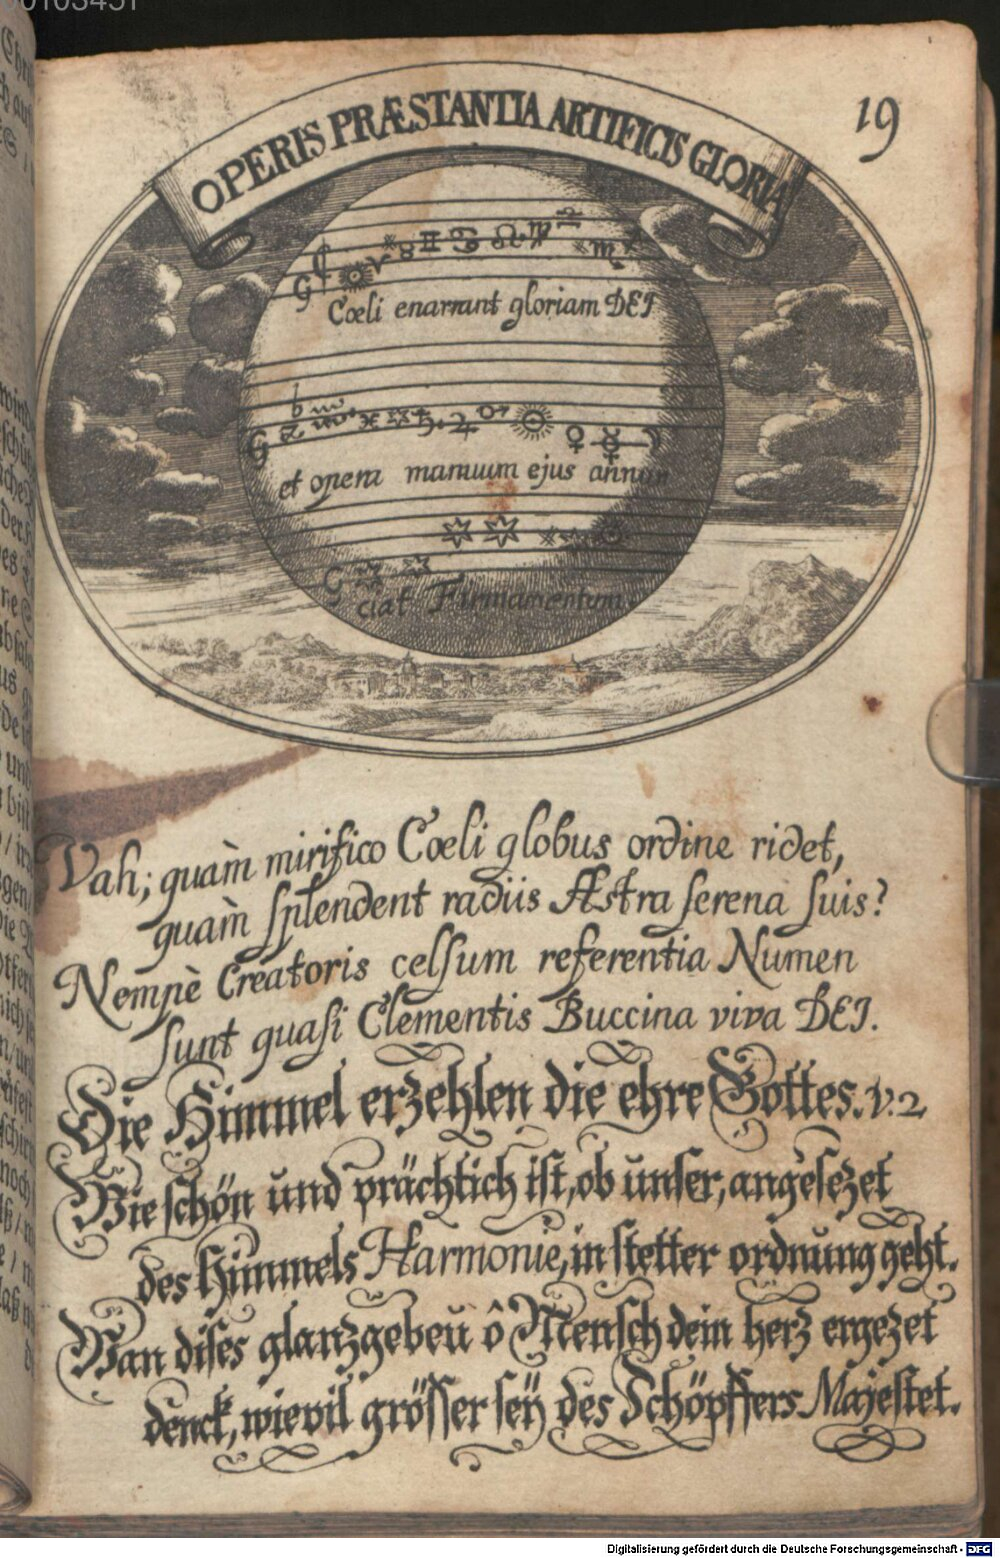 19
OPERIS PRÆSTANTIA ARTIFICIS GLORIA
Cœli enarrant gloriam DEI
et opera manuum ejus annun
ciat Firmamentum
Vah; quàm mirifico Cœli globus ordine ridet,
quàm splendent radiis Astra serena suis?
Nempè Creatoris celsum referentia Numen
sunt quasi Clementis Buccina viva DEI.
Die Himmel erzehlen die ehre Gottes. v. 2
Wie schön und prächtich ist, ob unser, angesezet
des Himmels Harmonie, in stetter ordnung geht.
Wan dises glanzgebeu ô Mensch dein herz ergezet
denck, wievil grösser seÿ des Schöpffers Majestet.
Digitalisierung gefördert durch die Deutsche Forschungsgemeinschaft - DFG